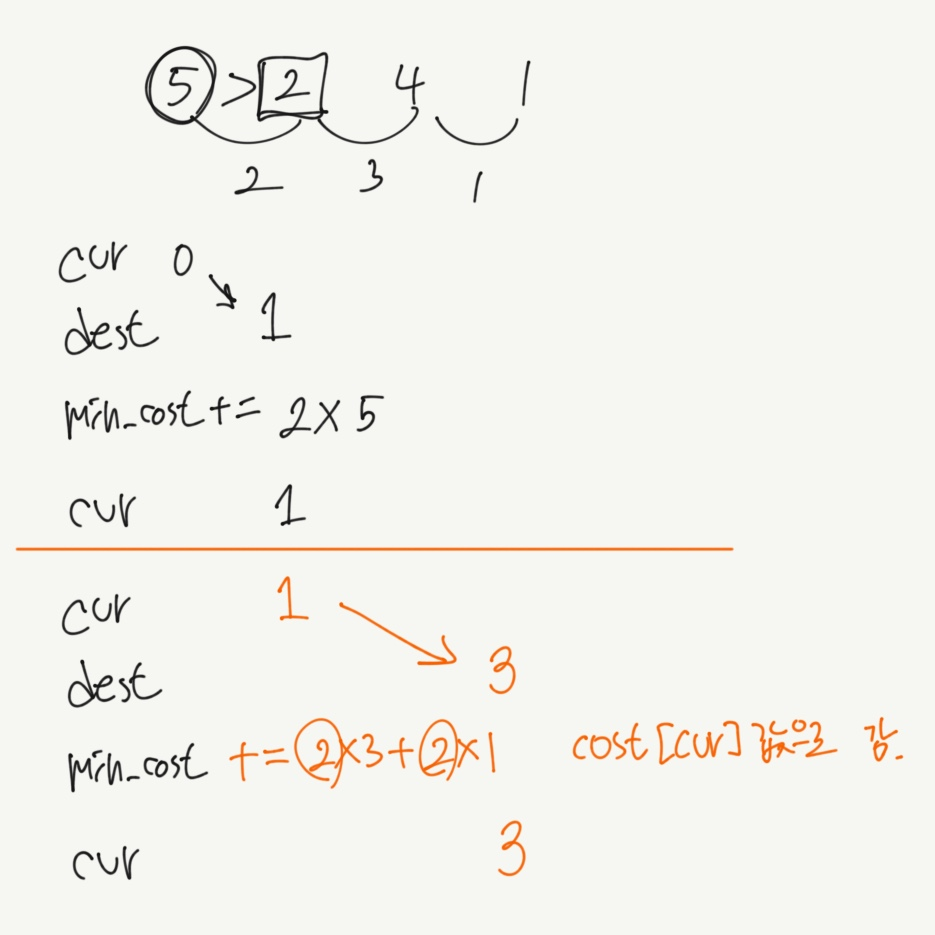 5 > 2 4 1
2 3 1
cur 0
dest 1
min_cost += 2 × 5
cur 1
cur 1
dest 3
min_cost += 2×3+2×1 cost[cur] 값으로 감.
cur 3